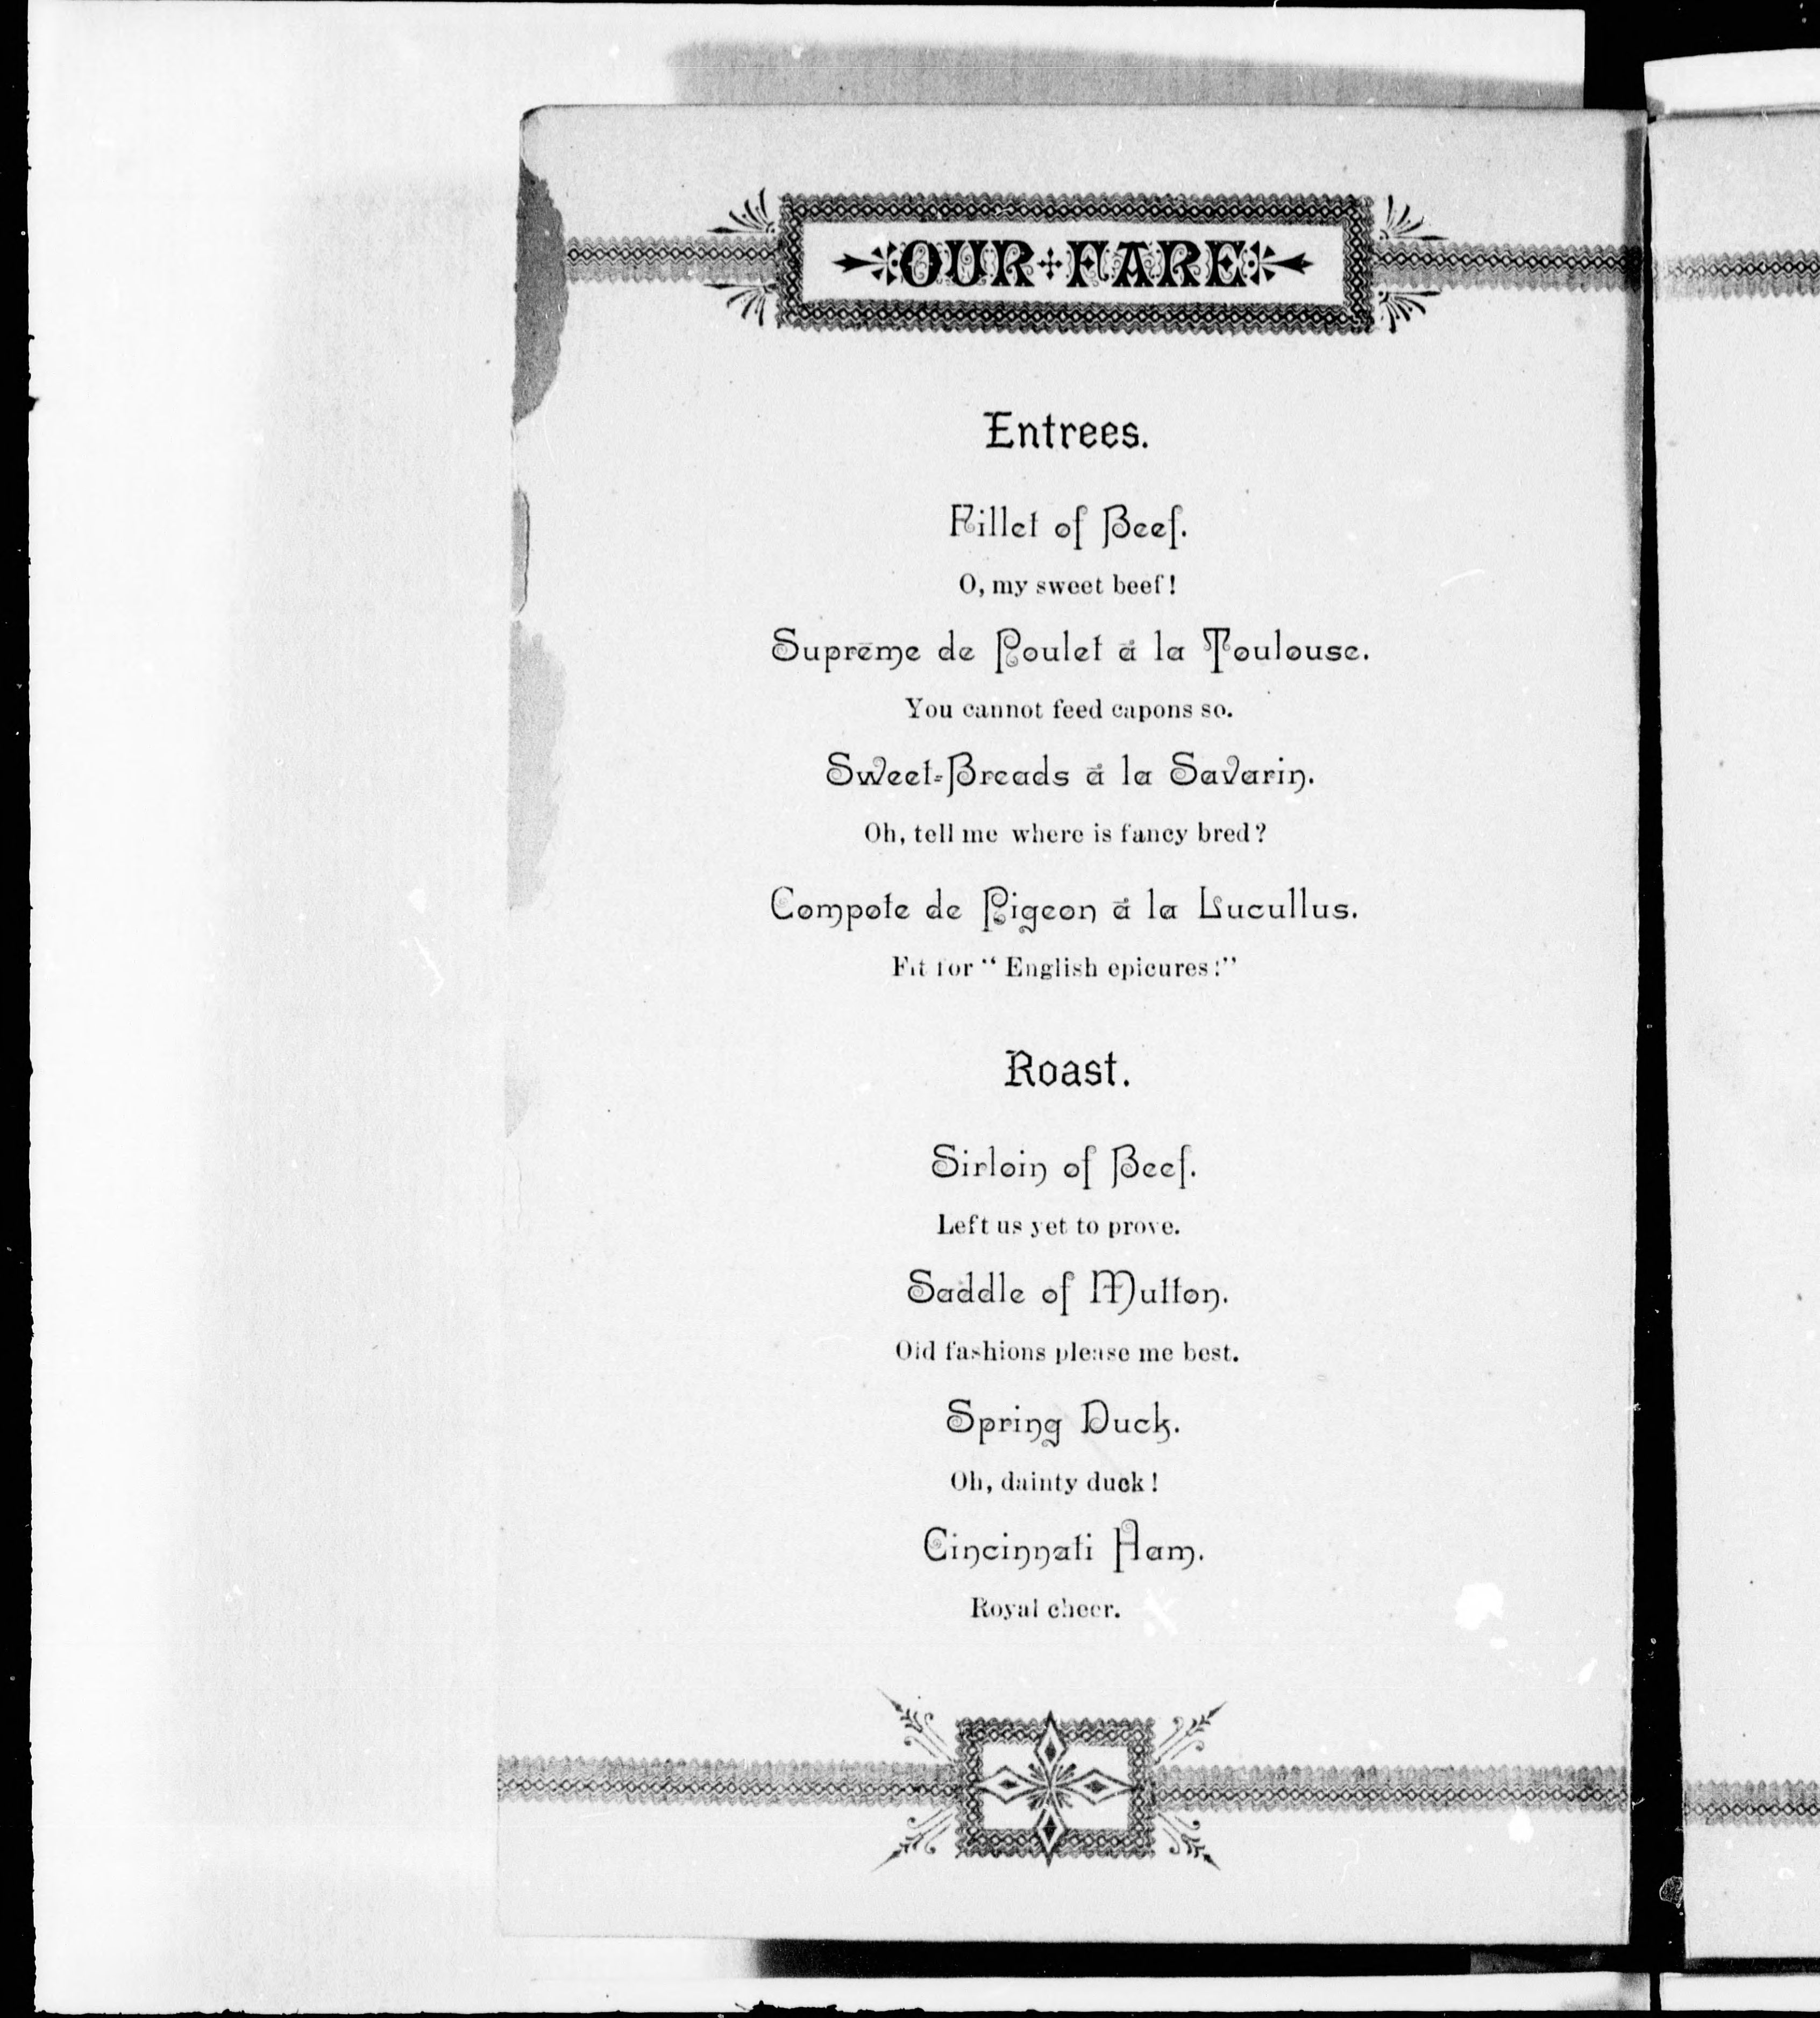 OUR FARE
Entrees.
Fillet of Beef.
O, my sweet beef!
Suprême de Poulet à la Toulouse.
You cannot feed capons so.
Sweet-Breads à la Savarin.
Oh, tell me where is fancy bred?
Compote de Pigeon à la Lucullus.
Fit for “English epicures!”
Roast.
Sirloin of Beef.
Left us yet to prove.
Saddle of Mutton.
Old fashions please me best.
Spring Duck.
Oh, dainty duck!
Cincinnati Ham.
Royal cheer.